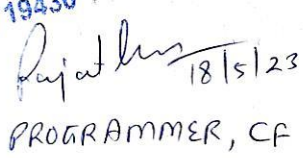 19430
Rajat
18/5/23
PROGRAMMER, CF